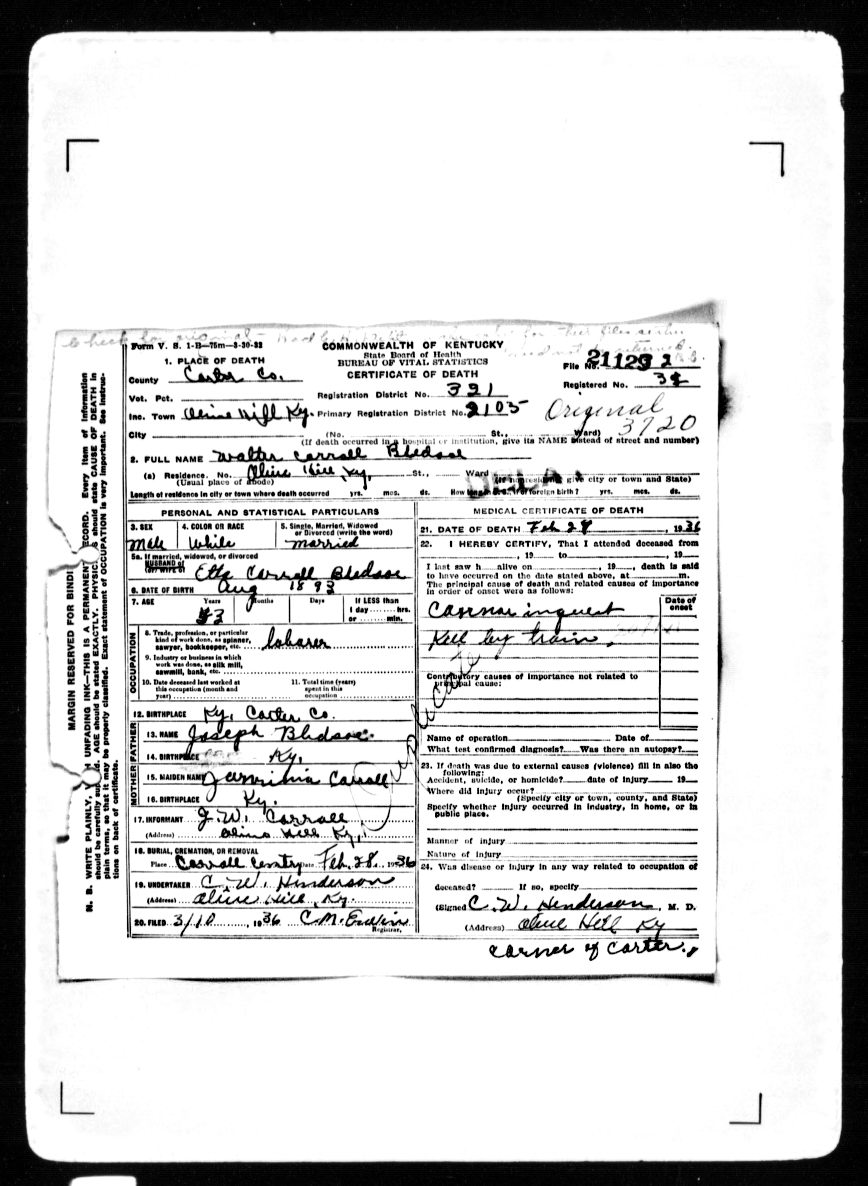 Form V. S. 1-B—75m—3-30-32
COMMONWEALTH OF KENTUCKY
State Board of Health
BUREAU OF VITAL STATISTICS
CERTIFICATE OF DEATH
File No.
Registered No.
Original
3720
1. PLACE OF DEATH
County Carter Co.
Vot. Pct.
Registration District No. 321
Inc. Town Olive Hill Ky. Primary Registration District No. 2105
City (No. St., Ward)
(If death occurred in a hospital or institution, give its NAME instead of street and number)
2. FULL NAME Walter Carroll Bledsoe
(a) Residence. No. Olive Hill, Ky. St., Ward (If nonresident give city or town and State)
(Usual place of abode)
Length of residence in city or town where death occurred yrs. mos. ds. How long in U. S., if of foreign birth? yrs. mos. ds.
PERSONAL AND STATISTICAL PARTICULARS
3. SEX 4. COLOR OR RACE 5. Single, Married, Widowed or Divorced (write the word)
Male White married
5a. If married, widowed, or divorced
HUSBAND of
(or) WIFE of Etta Carroll Bledsoe
6. DATE OF BIRTH Aug 1893
7. AGE Years Months Days If LESS than
1 day hrs.
or min.
OCCUPATION
8. Trade, profession, or particular
kind of work done, as spinner,
sawyer, bookkeeper, etc. laborer
9. Industry or business in which
work was done, as silk mill,
sawmill, bank, etc.
10. Date deceased last worked at
this occupation (month and
year)
11. Total time (years)
spent in this
occupation
12. BIRTHPLACE Ky. Carter Co.
FATHER
13. NAME Joseph Bledsoe
14. BIRTHPLACE Ky.
MOTHER
15. MAIDEN NAME Carroll
16. BIRTHPLACE Ky.
17. INFORMANT J. W. Carroll
(Address) Olive Hill Ky,
18. BURIAL, CREMATION, OR REMOVAL
Place Carroll Date Feb. 28, 1936
19. UNDERTAKER C. W. Henderson
(Address) Olive Hill, Ky.
20. FILED 3/10, 1936 C. M.
Registrar.
MEDICAL CERTIFICATE OF DEATH
21. DATE OF DEATH Feb 28, 1936
22. I HEREBY CERTIFY, That I attended deceased from
, 19 to , 19
I last saw h alive on , 19 , death is said
to have occurred on the date stated above, at m.
The principal cause of death and related causes of importance
in order of onset were as follows:
Date of
onset
inquest
Kell by train,
Duplicate
Contributory causes of importance not related to
principal cause:
Name of operation Date of
What test confirmed diagnosis? Was there an autopsy?
23. If death was due to external causes (violence) fill in also the
following:
Accident, suicide, or homicide? date of injury 19
Where did injury occur?
(Specify city or town, county, and State)
Specify whether injury occurred in industry, in home, or in
public place.
Manner of injury
Nature of injury
24. Was disease or injury in any way related to occupation of
deceased? If so, specify
(Signed C. W. Henderson, M. D.
(Address) Olive Hill Ky
corner of Carter.
MARGIN RESERVED FOR BINDI
N. B. WRITE PLAINLY, UNFADING INK—THIS IS A PERMANENT RECORD. Every item of information
should be carefully AGE should be stated EXACTLY. should state CAUSE OF DEATH in
plain terms, so that it may be properly classified. Exact statement of OCCUPATION is very important. See instruc-
tions on back of certificate.